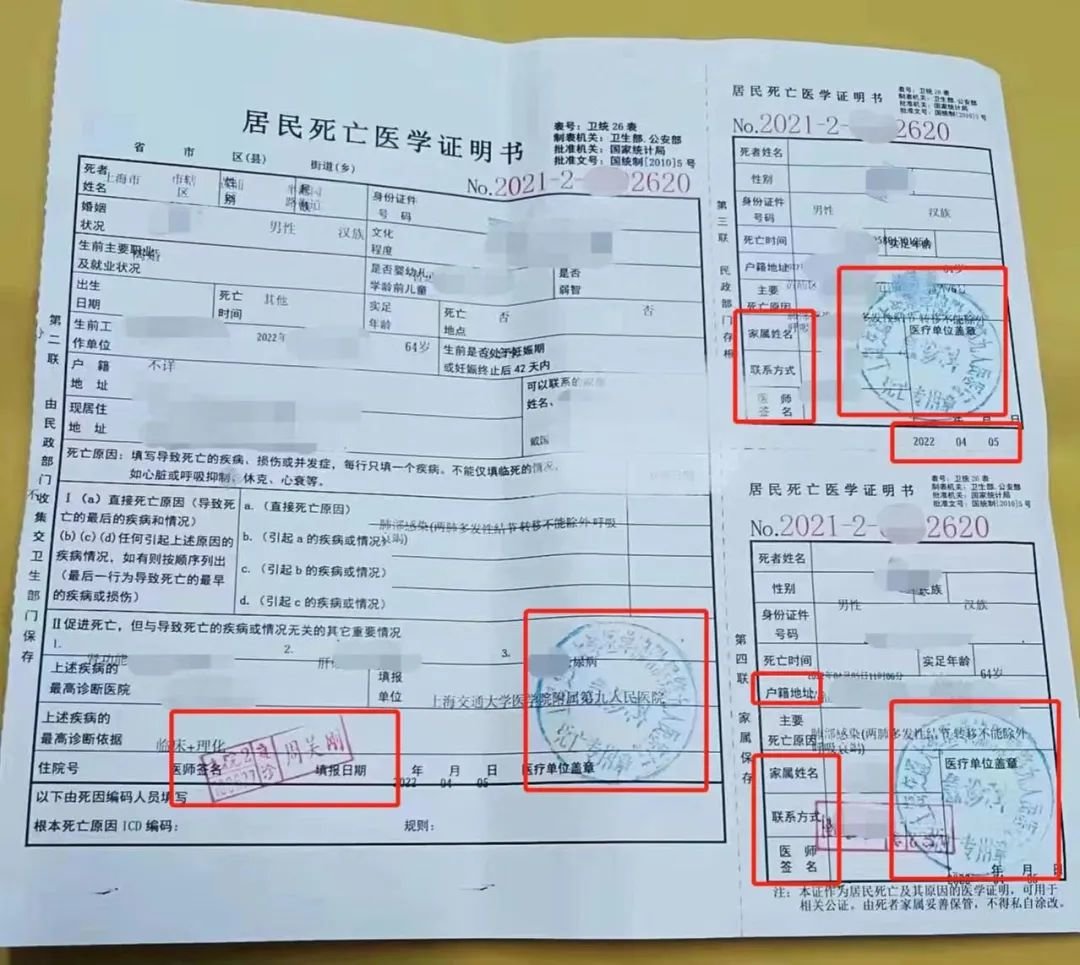 居民死亡医学证明书
表号：卫统26表
制表机关：卫生部.公安部
批准机关：国家统计局
批准文号：国统制[2010]5号
省 市 区(县) 街道(乡)
No.2021-2- 2620
死者姓名
上海市 市辖区
性别
身份证件号码
婚姻状况
男性 汉族
文化程度
生前主要职业及就业状况
离婚
是否婴幼儿、学龄前儿童
是否弱智
出生日期
死亡时间
其他
实足年龄
死亡地点
否
否
生前工作单位
2022年
64岁
生前是否处于妊娠期或妊娠终止后42天内
户籍地址
不详
可以联系的家属姓名、
现居住地址
戴国
死亡原因：填写导致死亡的疾病、损伤或并发症，每行只填一个疾病。不能仅填临死的情况，
如心脏或呼吸抑制、休克、心衰等。
I (a)直接死亡原因（导致死亡的最后的疾病和情况）
(b)(c)(d)任何引起上述原因的疾病情况，如有则按顺序列出
（最后一行为导致死亡的最早的疾病或损伤）
a.（直接死亡原因）
肺部感染(两肺多发性结节 转移不能除外 呼吸衰竭)
b.（引起a的疾病或情况）
c.（引起b的疾病或情况）
d.（引起c的疾病或情况）
II促进死亡，但与导致死亡的疾病或情况无关的其它重要情况
1.
肾功能
2.
肝
3.
尿病
上述疾病的最高诊断医院
填报单位
上海交通大学医学院附属第九人民医院
上述疾病的最高诊断依据
临床+理化
住院号
医师签名
周吴刚
填报日期
年 月 日
2022 04 05
医疗单位盖章
死亡专用章
以下由死因编码人员填写
根本死亡原因ICD编码：
规则：
第二联 由民政部门收集交卫生部门保存
居民死亡医学证明书
表号：卫统26表
制表机关：卫生部.公安部
批准机关：国家统计局
批准文号：国统制[2010]5号
No.2021-2- 2620
死者姓名
性别
身份证件号码
男性 汉族
死亡时间
实足年龄
户籍地址
64岁
主要死亡原因
多发性结节 转移不能除外
家属姓名
医疗单位盖章
联系方式
医师签名
年 月 日
2022 04 05
第三联 民政部门存根
居民死亡医学证明书
表号：卫统26表
制表机关：卫生部.公安部
批准机关：国家统计局
批准文号：国统制[2010]5号
No.2021-2- 2620
死者姓名
性别
民族
男性 汉族
身份证件号码
死亡时间
实足年龄
2022年04月05日11时06分
64岁
户籍地址
主要死亡原因
肺部感染(两肺多发性结节 转移不能除外
呼吸衰竭)
家属姓名
医疗单位盖章
联系方式
医师签名
专用章
年 月 日
第四联 家属保存
注：本证作为居民死亡及其原因的医学证明，可用于
相关公证。由死者家属妥善保管，不得私自涂改。